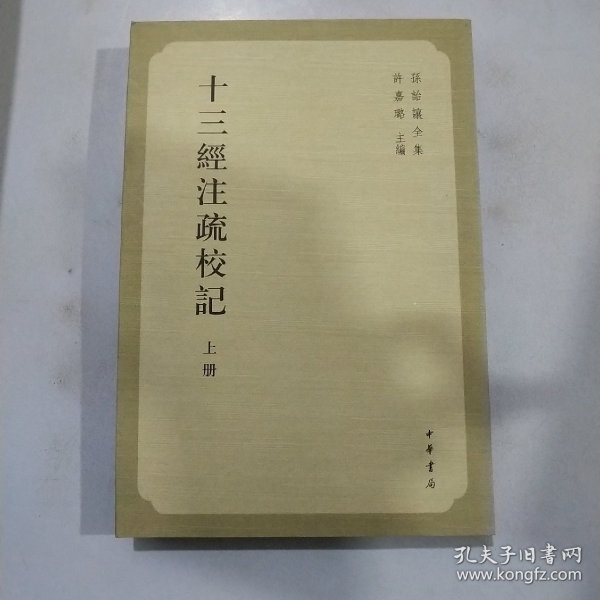 孫詒讓全集
許嘉璐 主編
十三經注疏校記
上册
中華書局
孔夫子旧书网
www.kongfz.com